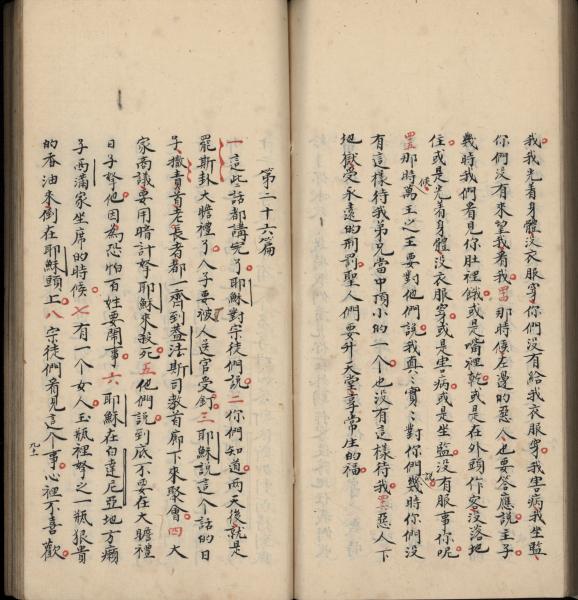 我我光着身體没衣服穿你們没有給我衣服穿我害病我坐監
你們没有來望我看我四四那時候左邊的惡人也要答應說主子
幾時我們看見你肚裡餓或是嘴裡乾或是在外頭作客没落地
住或是光着身體没衣服穿或是害病或是坐監没有服事你呢
四五那時候萬王之王要對他們說我真真實實對你們說幾時你們没
有這樣待我弟兄當中頂小的一个也没有這樣待我四六惡人下
地獄受永遠的刑罰聖人們要升天堂享常庄的福
第二十六篇
一這些話都講完了耶穌對宗徒們說二你們知道两天後就是
罷斯卦大瞻禮了人子要被人送官受釘三耶穌說這个話的日
子撒責耆老長者都一齊到葢法斯司教首廊下來聚會四大
家商議要用暗計拏耶穌來殺死五他們說到底不要在大瞻禮
日子拏他因為恐怕百姓要鬧事六耶穌在白達尼亞地方癩
子西滿家坐席的時候七有一个女人玉瓶裡拏之一瓶狠貴
的香油來倒在耶穌頭上八宗徒們看見这个事心裡不喜歡